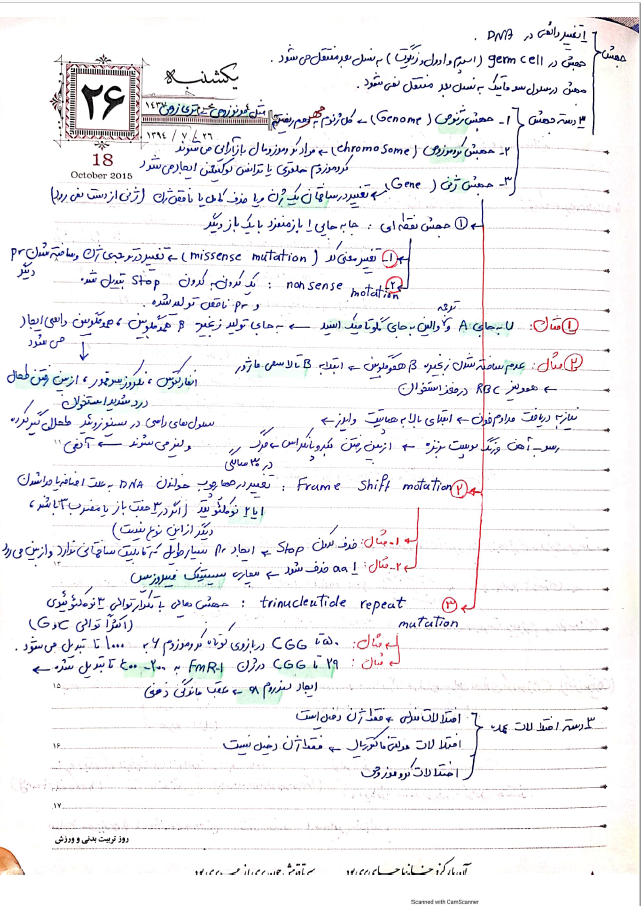 یکشنبه
۲۶
۱۴۳۷
۱۳۹۴ / ۷ / ۲۶
18
October 2015
جهش
تغییر دائمی در DNA .
جهش در germ cell (اسپرم و اوول و زیگوت) به نسل بعد منتقل می شود .
جهش در سلول سوماتیک به نسل بعد منتقل نمی شود.
۳ دسته جهش
۱- جهش ژنومی (Genome) ← کل ژنوم
۲- جهش کروموزومی (chromosome) ←
کروموزوم حلقوی یا ترانس لوکیشن ایجاد می شود
۳- جهش ژنی (Gene) ← تغییر در ساختمان یک ژن و یا حذف کامل یا ناقص ژن (ژنی از دست نمی رود)
① جهش نقطه ای : جا به جایی ۱ باز منفرد با یک باز دیگر
۱- تغییر معنی کد (missense mutation) ← تغییر در توصیف ژن و ساخته شدن pr دیگر
۲- nonsense motation : یک کدون به کدون Stop تبدیل شده
و pr ناقص تولید شده .
① مثال: U به جای A و والین به جای گلوتامیک اسید ← به جای تولید زنجیره β هموگلوبین ، هموگلوبین داسی ایجاد
می شود
② مثال: عدم ساخته شدن زنجیره β هموگلوبین ← ابتلا به β تالاسمی ماژور
← همولیز RBC در مغز استخوان
انفارکتوس ، از بین رفتن طحال
درد شدید استخوان
سلول های داسی در طحال گیر کرده
و لیز می شوند ← آنمی
نیاز به دریافت مداوم خون ← ابتلای بالا به هپاتیت و ایدز ←
رسوب آهن و رنگ پوست برنزه ← از بین رفتن کبد و پانکراس ← مرگ
در ۳۰ سالگی
② Frame Shift motation : تغییر در چهارچوب خواندن DNA به علت اضافه یا جدا شدن
۱ یا ۲ نوکلئوتید (اگر در ۳ جفت باز یا مضرب ۳ باشد ،
دیگر از این نوع نیست)
۱- مثال: حذف کدون Stop ← ایجاد pr بسیار طویل که قابلیت ساختمانی ندارد و از بین می رود
۲- مثال: ۱ aa حذف شود ← بیماری سیستیک فیبروزیس
③ trinucleutide repeat motation : جهش هایی با تکرار توالی ۳ نوکلئوتیدی
(اکثراً توالی C و G)
مثال: ۵۰ تا CGG در بازوی کوتاه کروموزوم ۶ به ۱۰۰۰ تا تبدیل می شود .
مثال: ۲۹ تا CGG در ژن FMR1 به ۲۰۰ تا تبدیل شده ←
ایجاد سندروم ← عقب ماندگی ذهنی
۳ دسته اختلالات عمده
اختلالات ← فقط ۱ ژن دخیل است
اختلالات مولتی فاکتوریال ← فقط ۱ ژن دخیل نیست
اختلالات کروموزومی
۱۵
۱۶
۱۷
روز تربیت بدنی و ورزش
Scanned with CamScanner